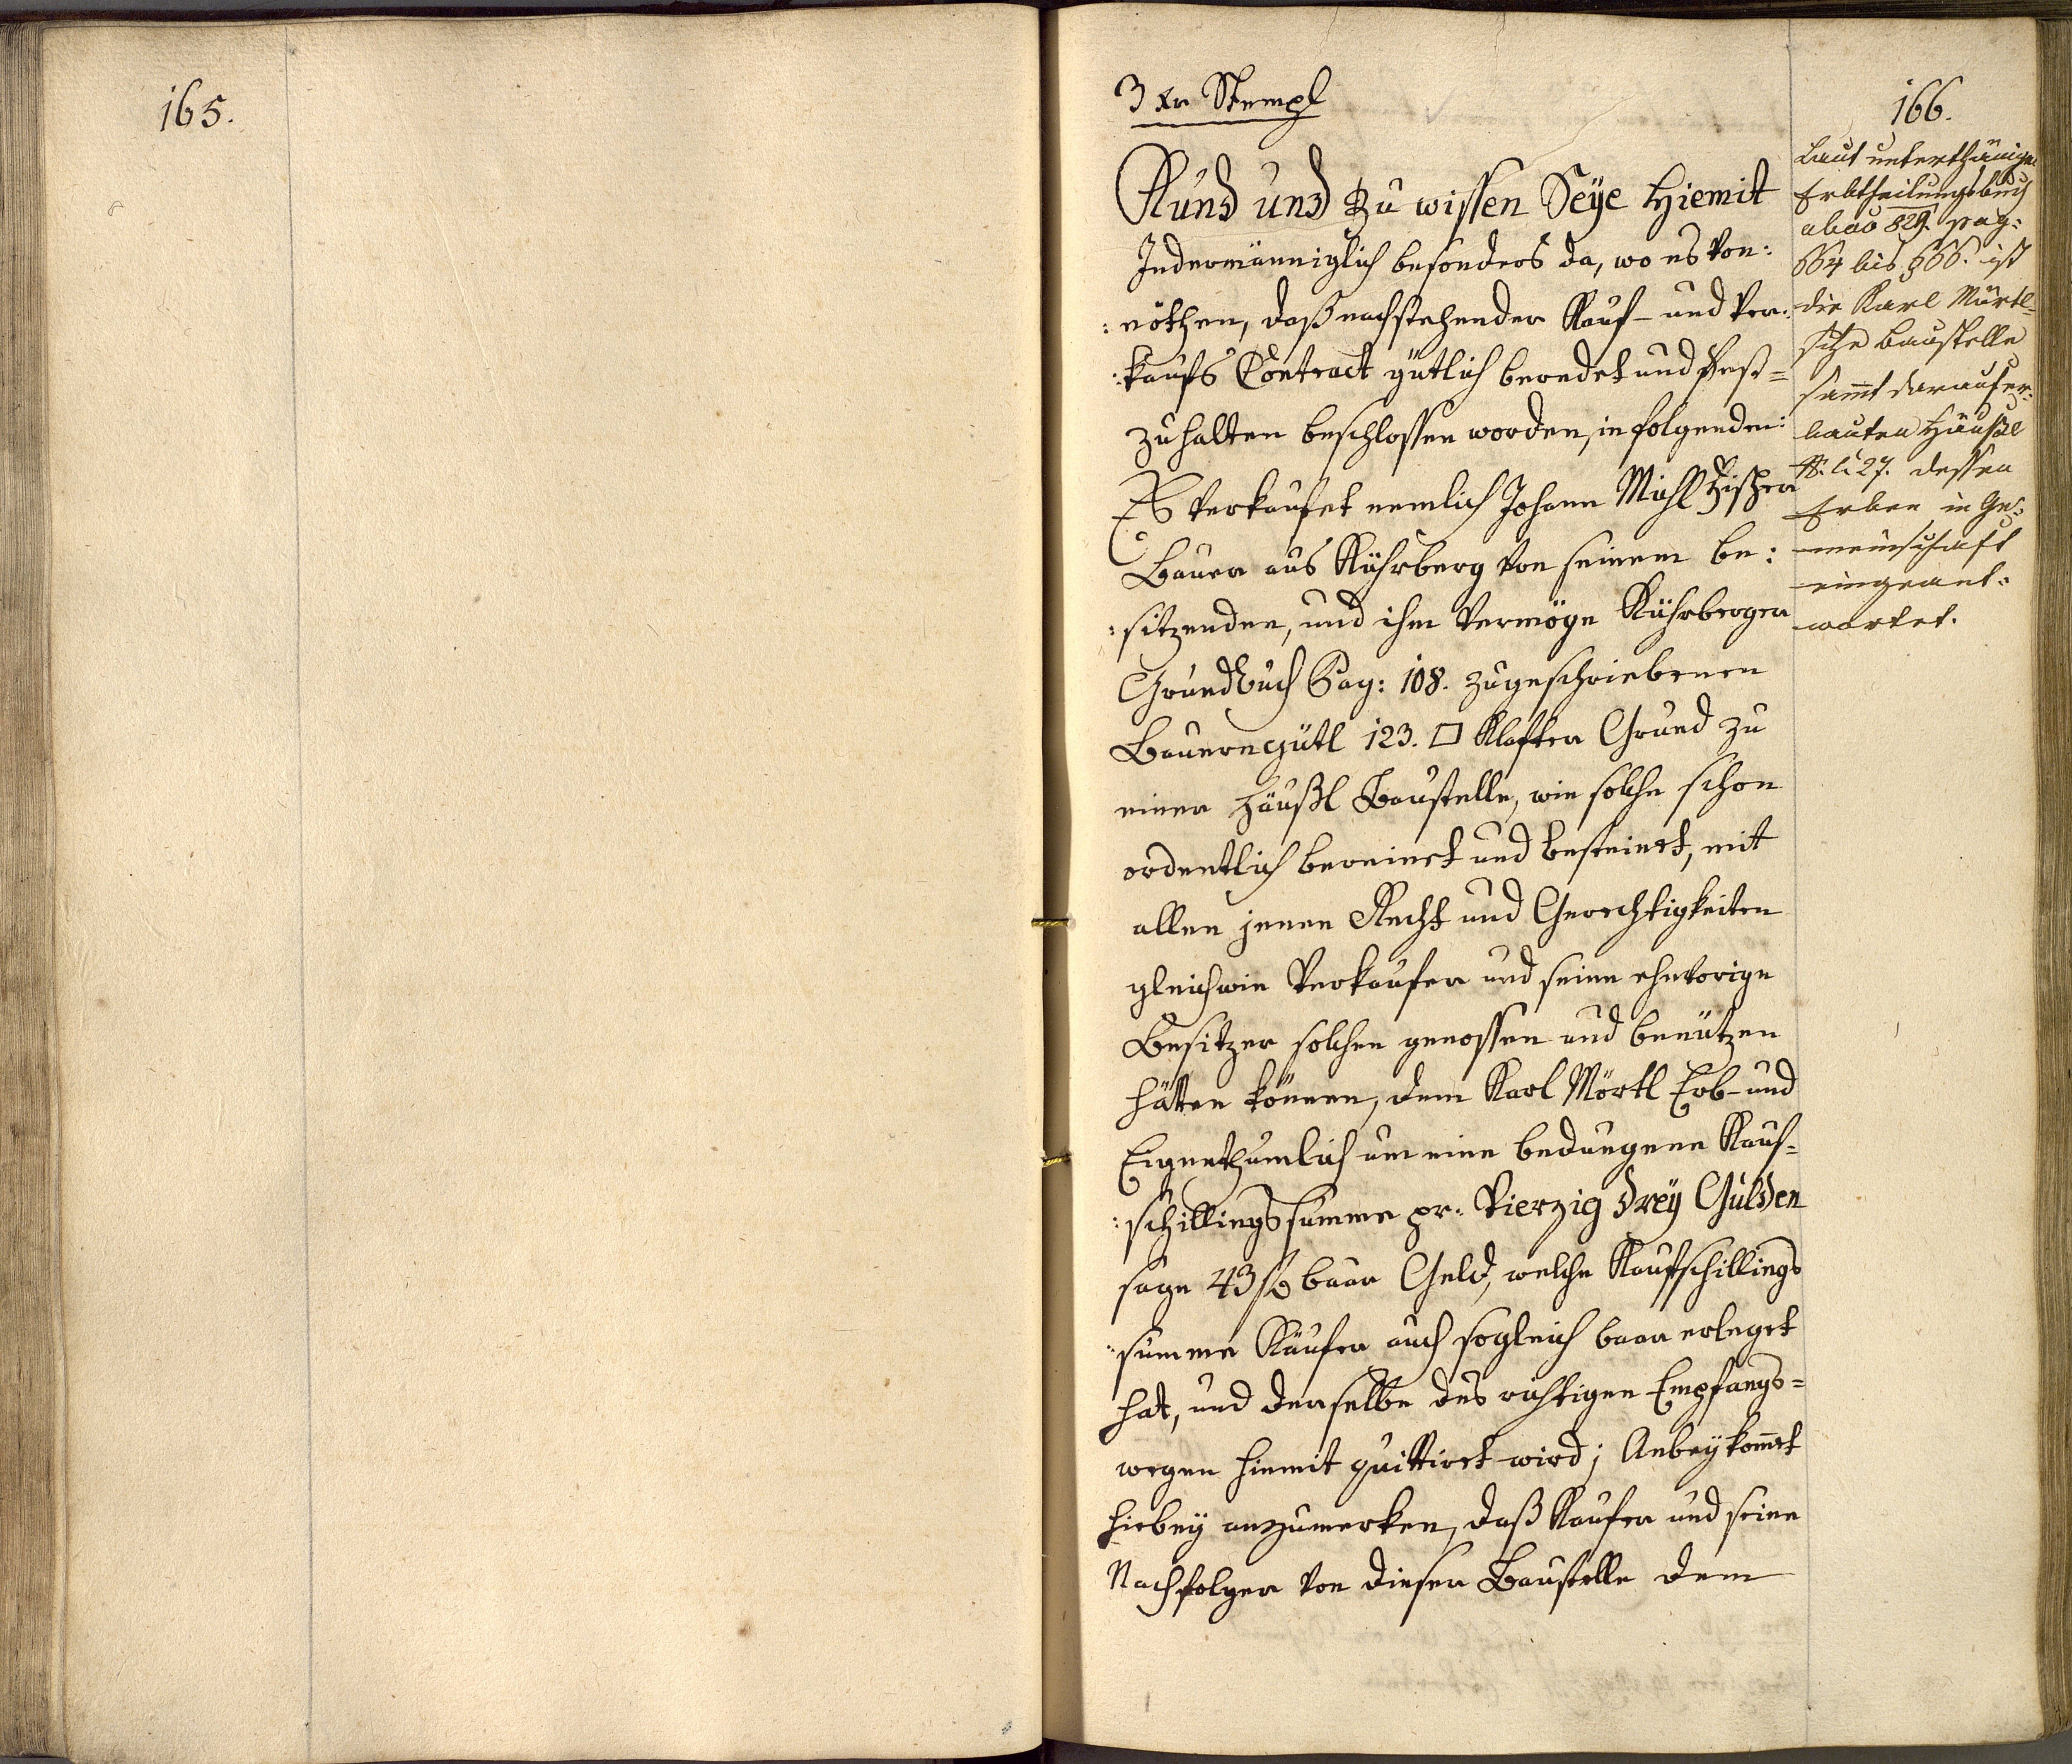 165.
3 Xr Stempl
Kund und zu wissen Seÿe Hiemit
Jedermänniglich besonders da, wo es von:
:nöthen, daß nachstehender Kauf- und Ver:
:kaufs Contract gütlich beredet und fest=
zuhalten beschlossen worden, in folgenden:
Es verkaufet nemlich Johann Michl
Bauer aus Kührberg von seinem be:
:sitzenden, und ihm vermöge Kührberger
Grundbuch Pag: 108. zugeschriebenen
Bauerngütl 123. □ Klafter Grund zu
einer Häußl Baustelle, wie solche schon
ordentlich bereinet und besteinet, mit
allen jenen Recht und Gerechtigkeiten
gleichwie Verkaufer und seine ehevorige
Besitzer solchen genossen und benützen
hätten können, dem Karl Mörtl Erb- und
Eigenthumlich um eine bedungene Kauf=
:schillingssumme pr. Vierzig dreÿ Gulden
sage 43 f baar Geld, welche Kaufschillings
:summe Käufer auch sogleich baar erleget
hat, und derselbe des richtigen Empfangs=
wegen hiemit quittiret wird; Anbeÿ kom̅et
hiebeÿ anzumerken, daß Kaufer und seine
Nachfolger von dieser Baustelle dem
166.
Laut unterthänigen
Erbtheilungsbuch
ab ao 829. pag:
564 bis 566. ist
die Karl Mörtl=
sche Baustelle
sam̅t darauf er=
bauten Häußl
N: C. 27. dessen
Erben in Ge=
meinschaft
eingeant=
wortet.